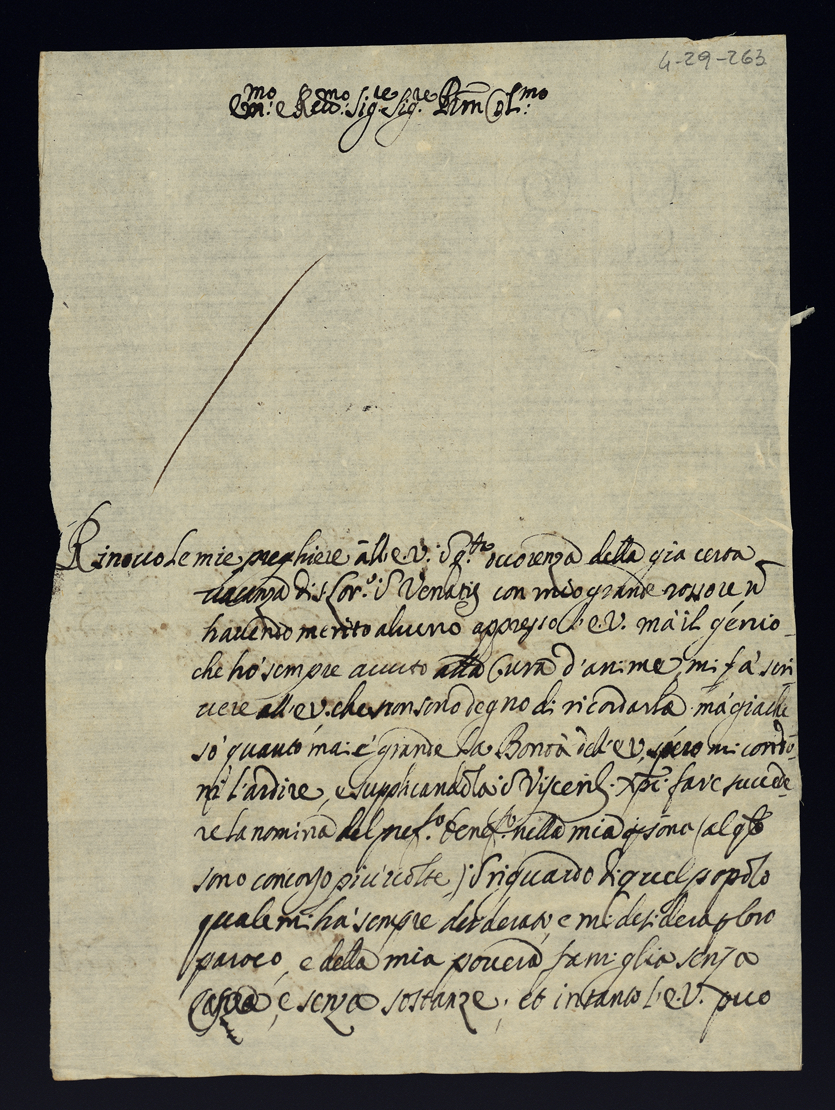 4-29-263
Em:mo e Rev:mo Sig:re Sig:re Pñ Col:mo
Rinovo le mie preghiere all'e.V. in q:ta occorenza della gia certa
vacanza di S. Lor:o in Venatis con mio grande rossore ñ
havendo merito alcuno appresso l'e.V. mà il génio
che hò sempre avuto alla Cura d'anime, mi fà scri-
vere all'e.V. che non sono degno di ricordarla mà giache
sò quanto mai è grande la Bontà dell'e.V. spero mi condo-
ni l'ardire, e supplicandola in Visceribs Xpi fare succede-
re la nomina del pref:o benef:o nella mia psona (al qle
sono concorso più volte,) in riguardo di quel popolo
quale mi hà sempre desiderato, e mi desidera p loro
paroco, e della mia povera famiglia senza
Casa, è senza sostanze, et intanto l'e.V. può